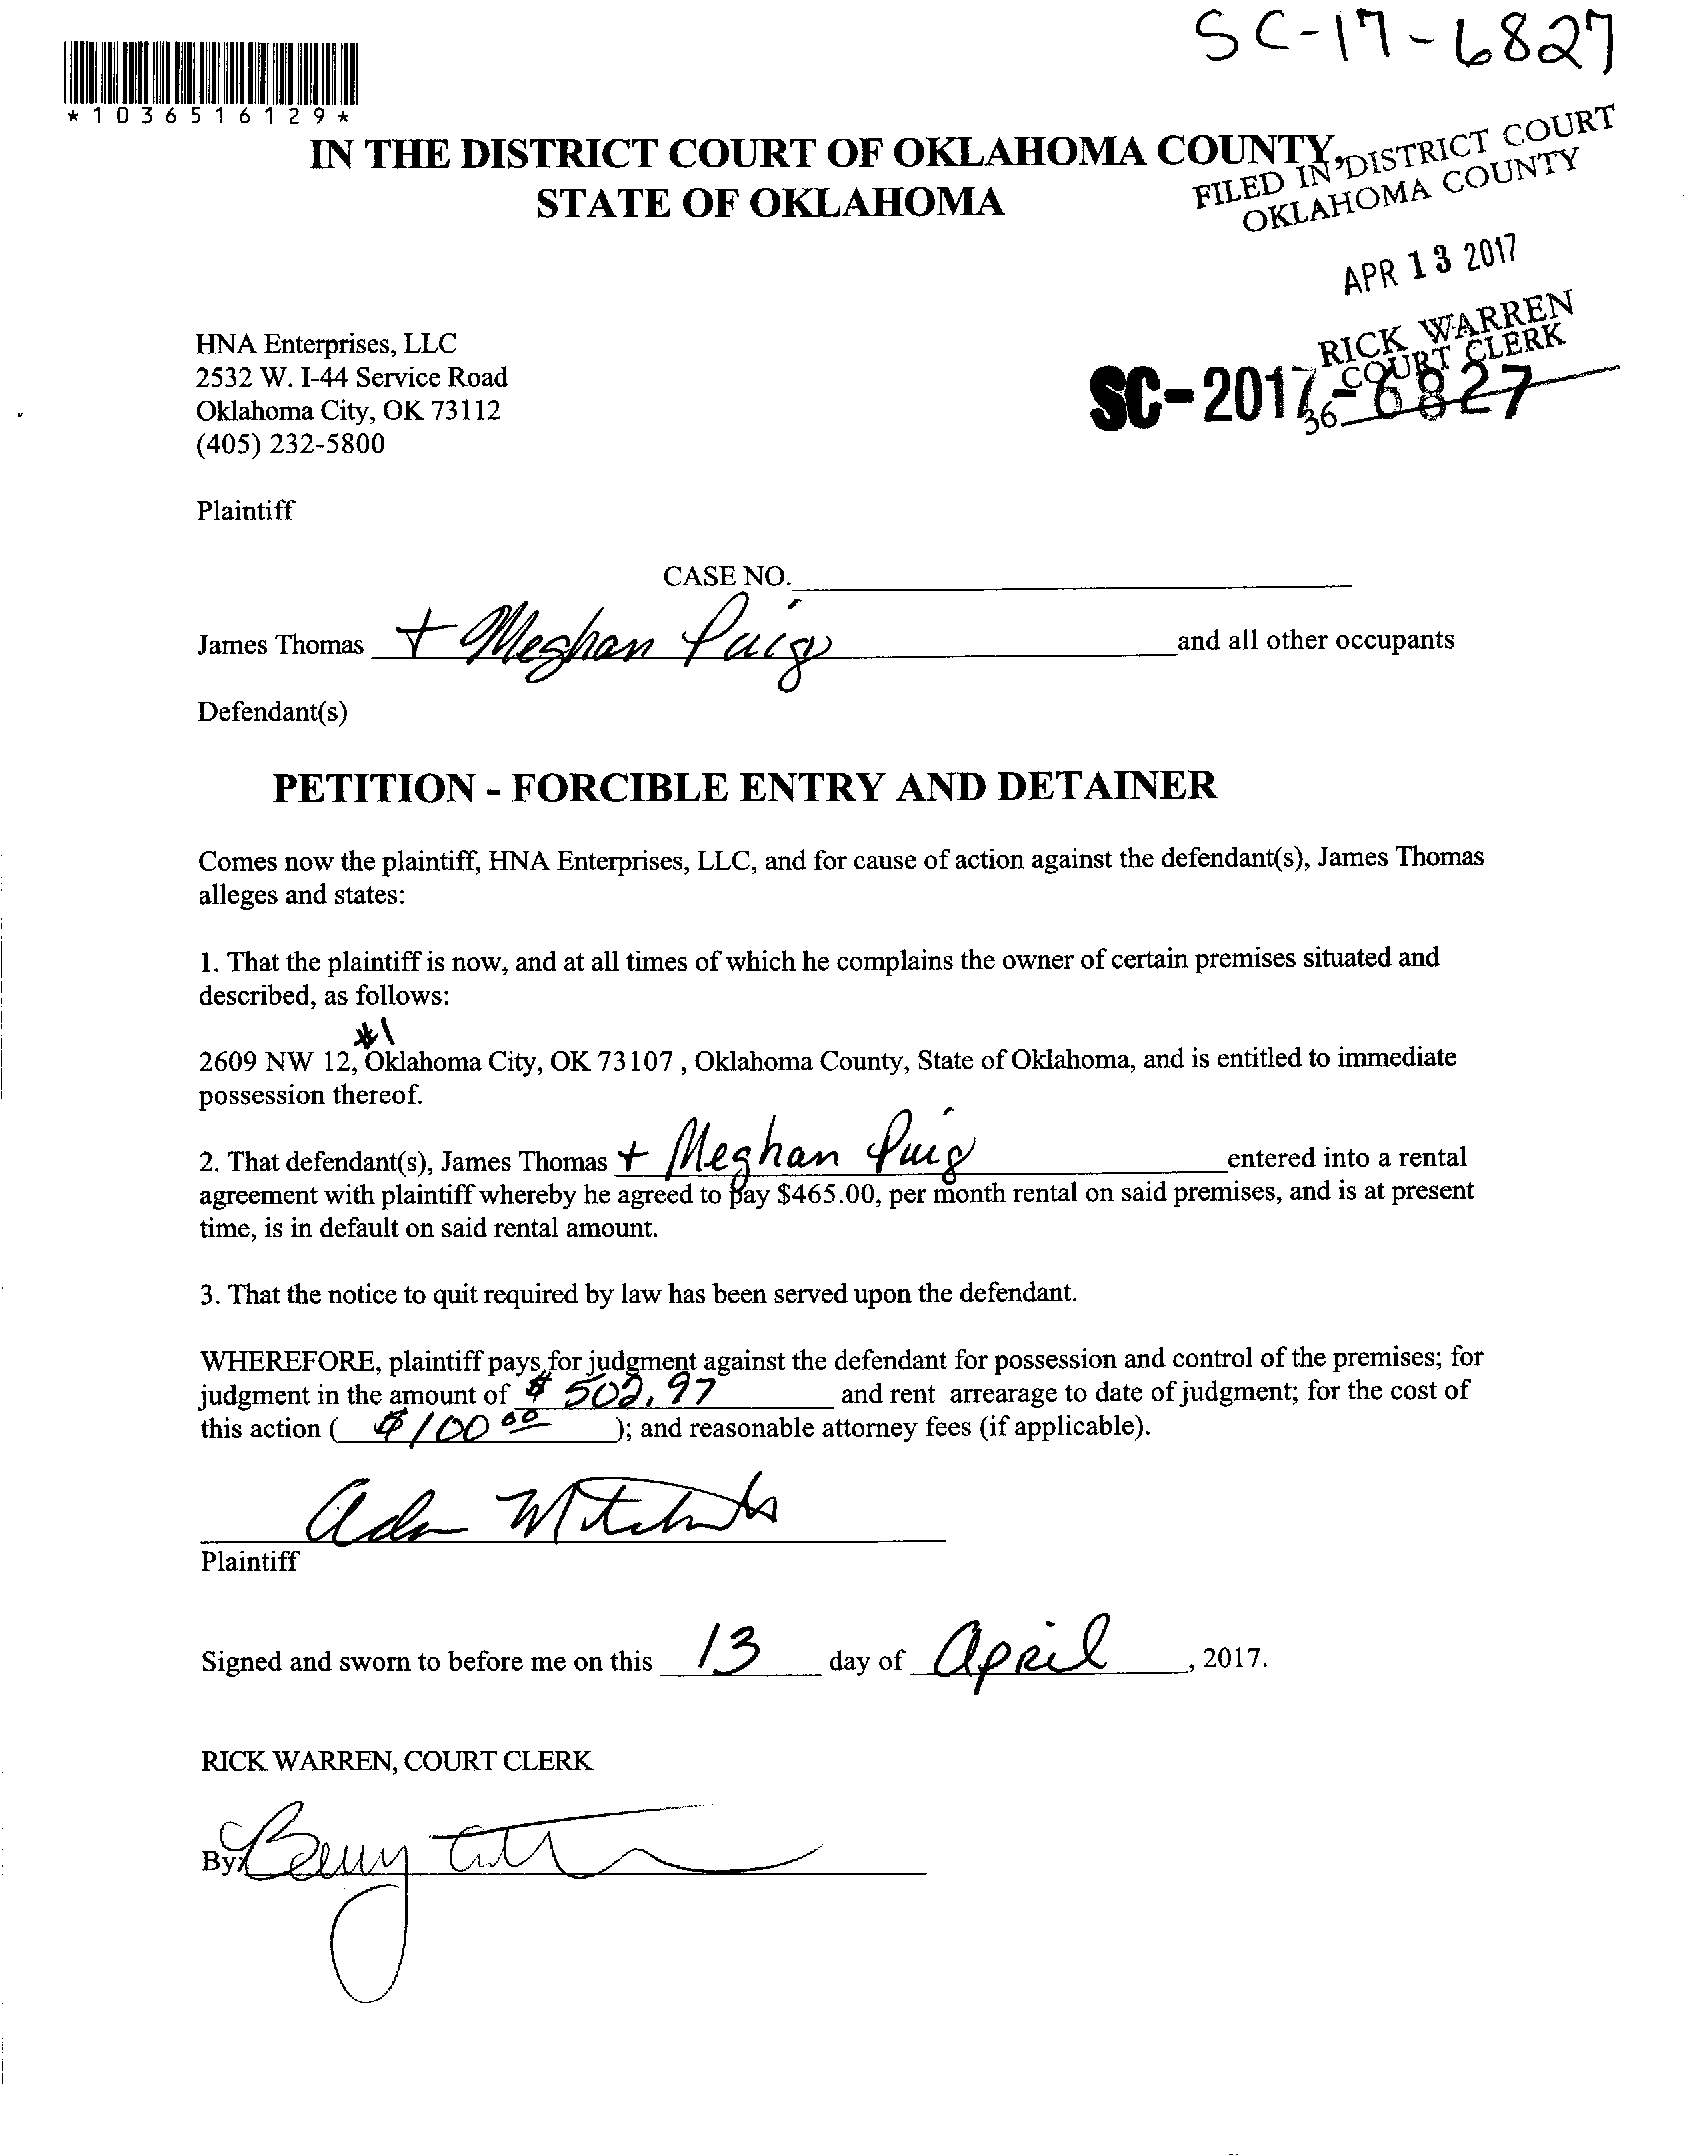 SC-17-6827
*1036516129*
IN THE DISTRICT COURT OF OKLAHOMA COUNTY,
STATE OF OKLAHOMA
FILED IN DISTRICT COURT
OKLAHOMA COUNTY
APR 13 2017
RICK WARREN
COURT CLERK
36
SC-2017-6827
HNA Enterprises, LLC
2532 W. I-44 Service Road
Oklahoma City, OK 73112
(405) 232-5800
Plaintiff
CASE NO.
James Thomas + Meghan Puig and all other occupants
Defendant(s)
PETITION - FORCIBLE ENTRY AND DETAINER
Comes now the plaintiff, HNA Enterprises, LLC, and for cause of action against the defendant(s), James Thomas
alleges and states:
1. That the plaintiff is now, and at all times of which he complains the owner of certain premises situated and
described, as follows:
#1
2609 NW 12, Oklahoma City, OK 73107 , Oklahoma County, State of Oklahoma, and is entitled to immediate
possession thereof.
2. That defendant(s), James Thomas + Meghan Puig entered into a rental
agreement with plaintiff whereby he agreed to pay $465.00, per month rental on said premises, and is at present
time, is in default on said rental amount.
3. That the notice to quit required by law has been served upon the defendant.
WHEREFORE, plaintiff pays for judgment against the defendant for possession and control of the premises; for
judgment in the amount of $ 502.97 and rent arrearage to date of judgment; for the cost of
this action ( $100 00 ); and reasonable attorney fees (if applicable).
Plaintiff
Signed and sworn to before me on this 13 day of April , 2017.
RICK WARREN, COURT CLERK
By